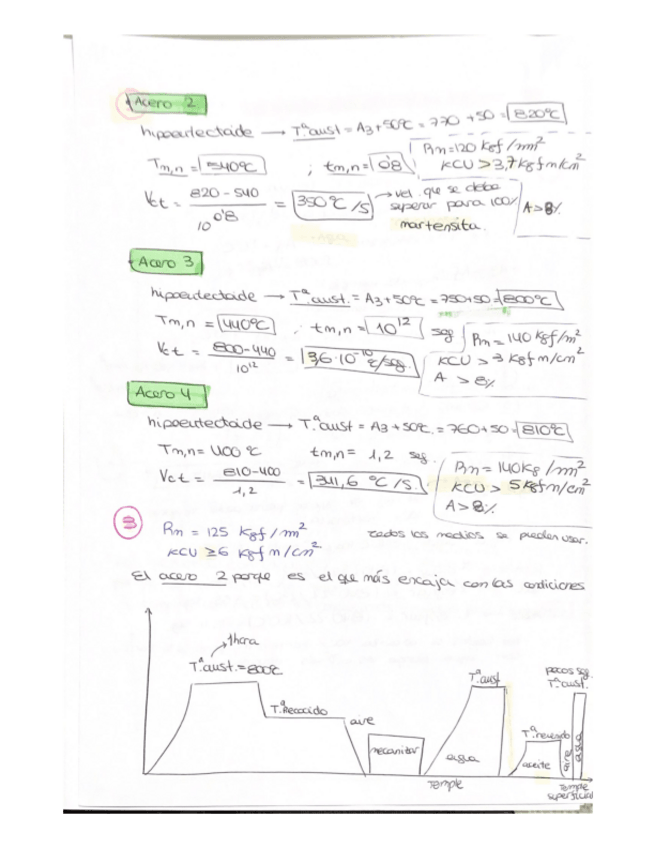 Acero 2
hipoeutectoide → Tª aust = A3+50ºC = 770 +50 = 820ºC
Tm,n = 540ºC ; tm,n = 0'8
Rm=120 kgf/mm²
KCU >3,7 kgf m/cm²
A>8%
Vct = 820 - 540 / 10^0'8 = 350ºC/s → vel. que se debe
superar para 100%
martensita.
Acero 3
hipoeutectoide → Tª aust. = A3+50ºC = 750+50 = 800ºC
Tm,n = 440ºC ; tm,n = 10^12 seg
Rm = 140 kgf/m²
KCU > 3 kgf m/cm²
A > 8%
Vct = 800-440 / 10^12 = 3,6·10^-10 ºC/seg.
Acero 4
hipoeutectoide → Tª aust = A3 +50ºC = 760+50 = 810ºC
Tm,n= 400 ºC tm,n= 1,2 seg.
Vct = 810-400 / 1,2 = 341,6 ºC/s.
Rm = 140 kg /mm²
KCU > 5 kgf m/cm²
A>8%
3
Rm = 125 kgf/m²
KCU ≥6 kgf m/cm²
todos los medios se pueden usar.
El acero 2 porque es el que más encaja con las condiciones
1hora
Tª aust.=800ºC
Tª Recocido
aire
mecanizar
Tª aust
agua
Temple
Tª revenido
aceite
pocos seg.
Tª aust.
aire
agua
Temple
superficial